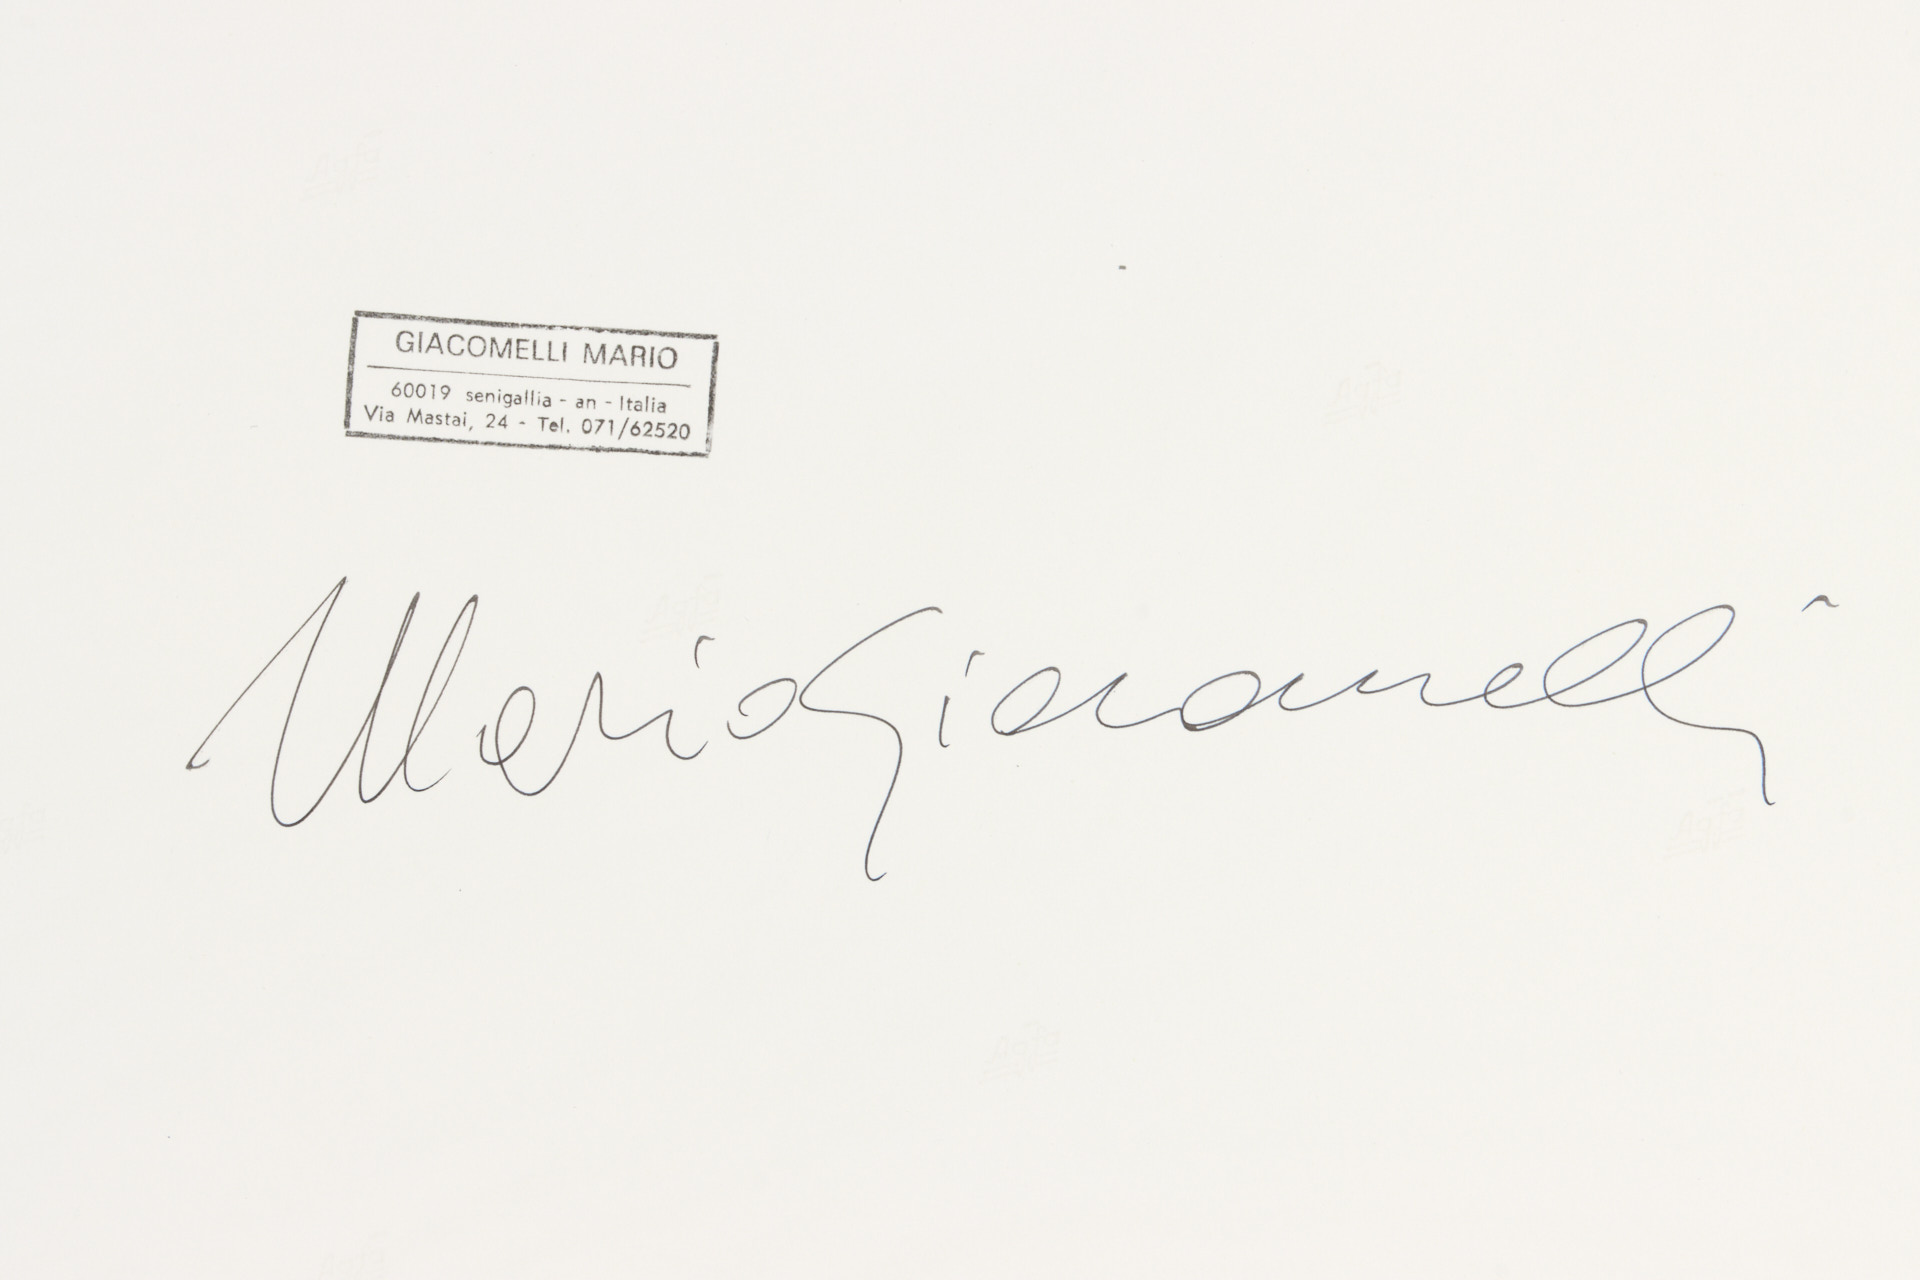 GIACOMELLI MARIO
60019 senigallia - an - Italia
Via Mastai, 24 - Tel. 071/62520
Mario Giacomelli